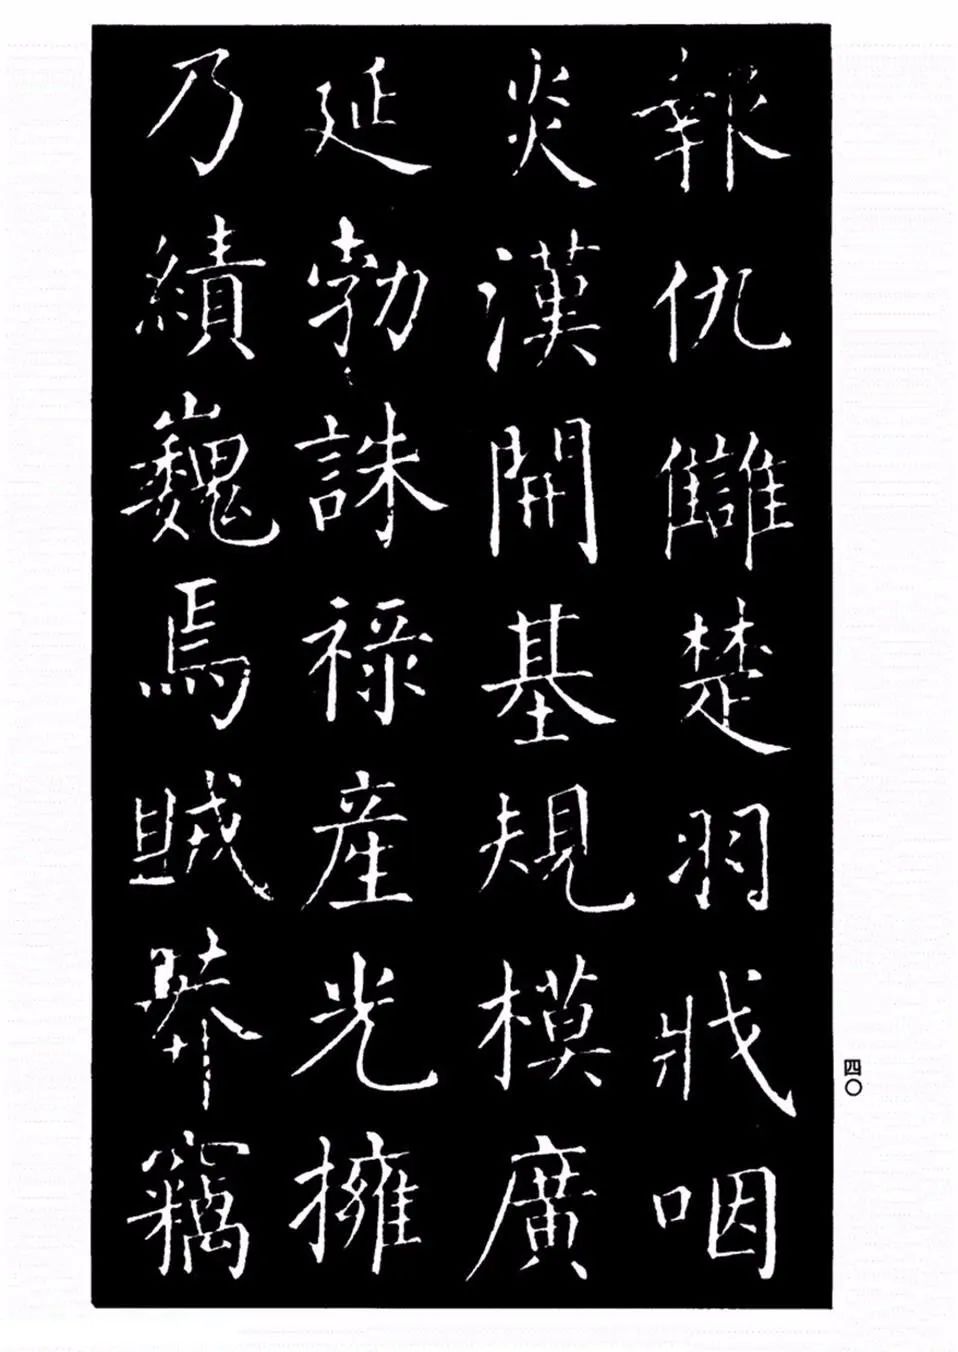 報仇讎楚羽戕咽
炎漢開基規模廣
延勃誅祿產光擁
乃績巍焉賊莽竊
四〇